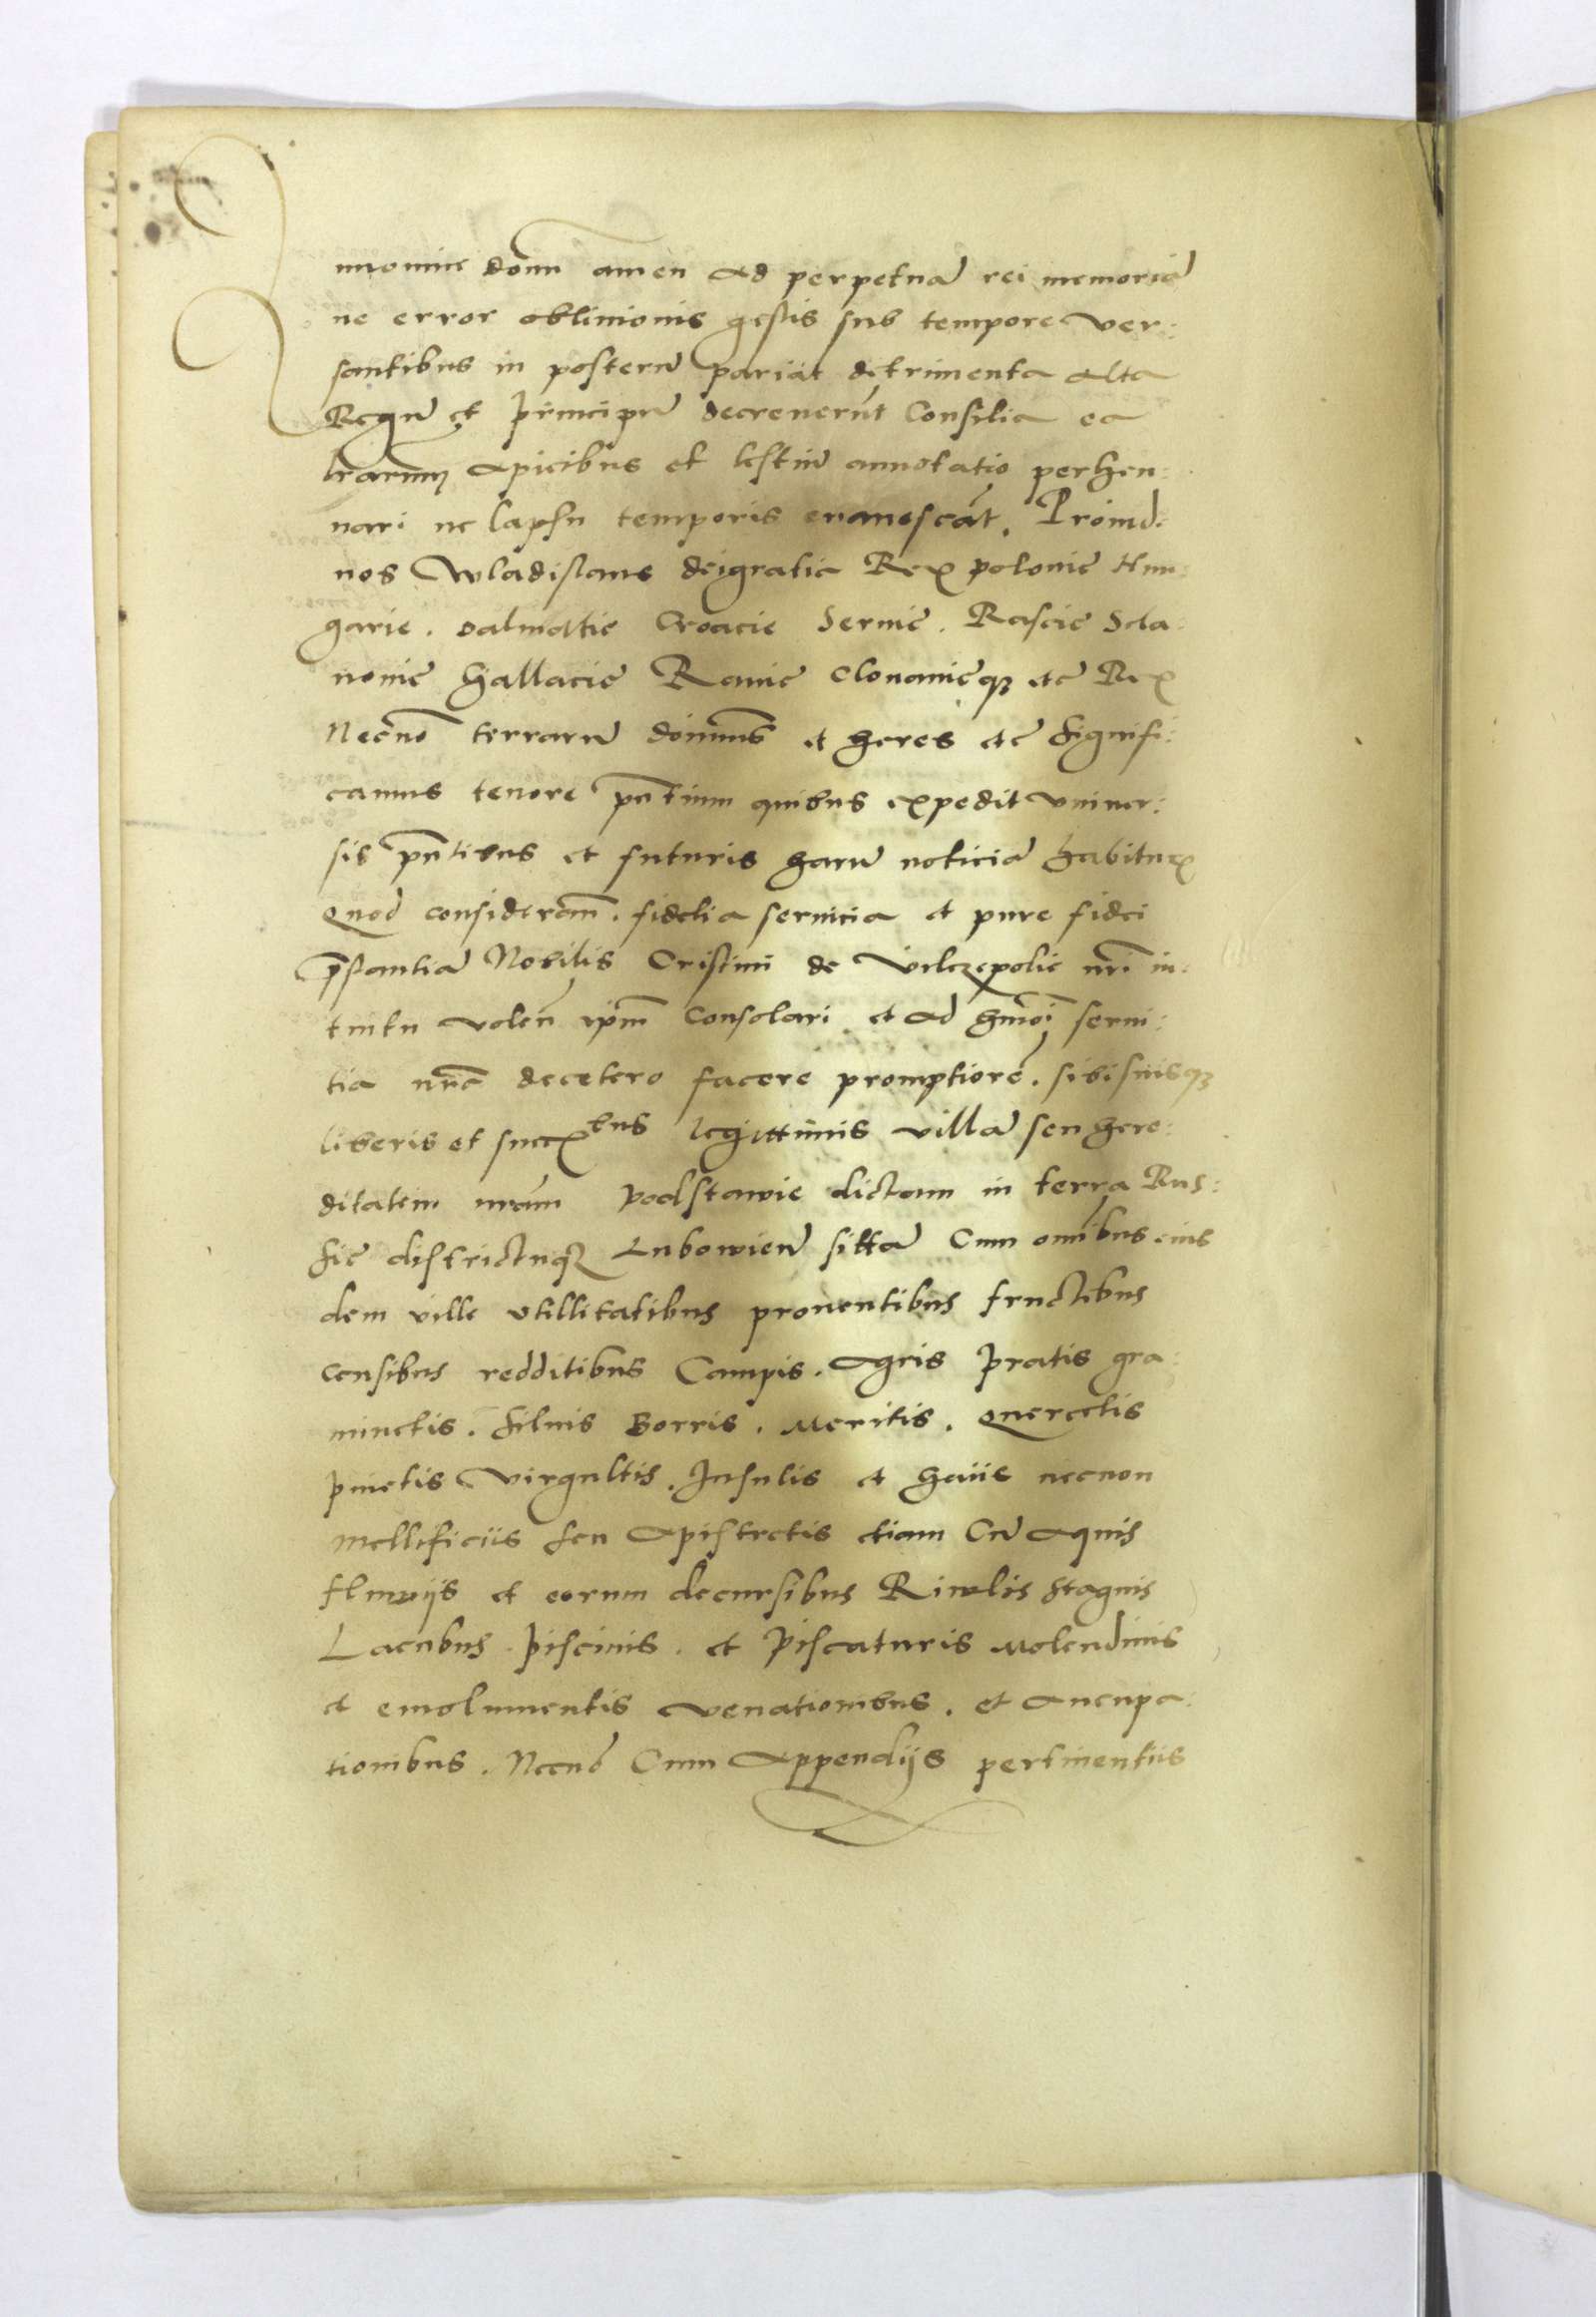 In nomine domi amen Ad perpetuā rei memoriā
ne error oblivionis gestis sub tempore ver:
santibus in posterū pariat detrimenta alta
Regū et principū decreverūt Consilia ea
lrarum apicibus et testiū annotatio perhen:
nari ne lapsu temporis evanescāt. Proind.
nos Wladislaus dei gratia Rex polonie Hun:
garie. dalmatie Croacie Servie. Rascie Scla:
vonie Gallacie Ramie etc Rex
Necnō terrarū dominus et heres etc signifi:
camus tenore pntium quibus expedit univer:
sis pntibus et futuris harū noticiā habitur
Quod considerant. fidelia servicia et pure fidei
pstantiā Nobilis Cristini de Vilczepolie nri in:
tuitu volen ipm Consolari et ad hmoi servi:
tia nrā decetero facere promptiorē. sibi suisq3
liberis et succ bus legittimis villā seu here:
ditatem nram podstawie dictam in terra Rus:
sie districtuq3 Lubowien sittā Cum omibus eius
dem ville utillitatibus proventibus fructibus
censibus redditibus Campis. Agris pratis gra:
minetis. silvis Borris. Meritis. Quercetis
pinetis virgultis. Insulis et Gaiis necnon
Mellificiis seu Apistretis etiam Cū aquis
fluvijs et eorum decursibus Rivulis stagnis
Lacubus piscinis. et Piscaturis Molendinis
et emolumentis venationibus. et aucupa:
tionibus. Necnō Cum Appendijs pertinentiis